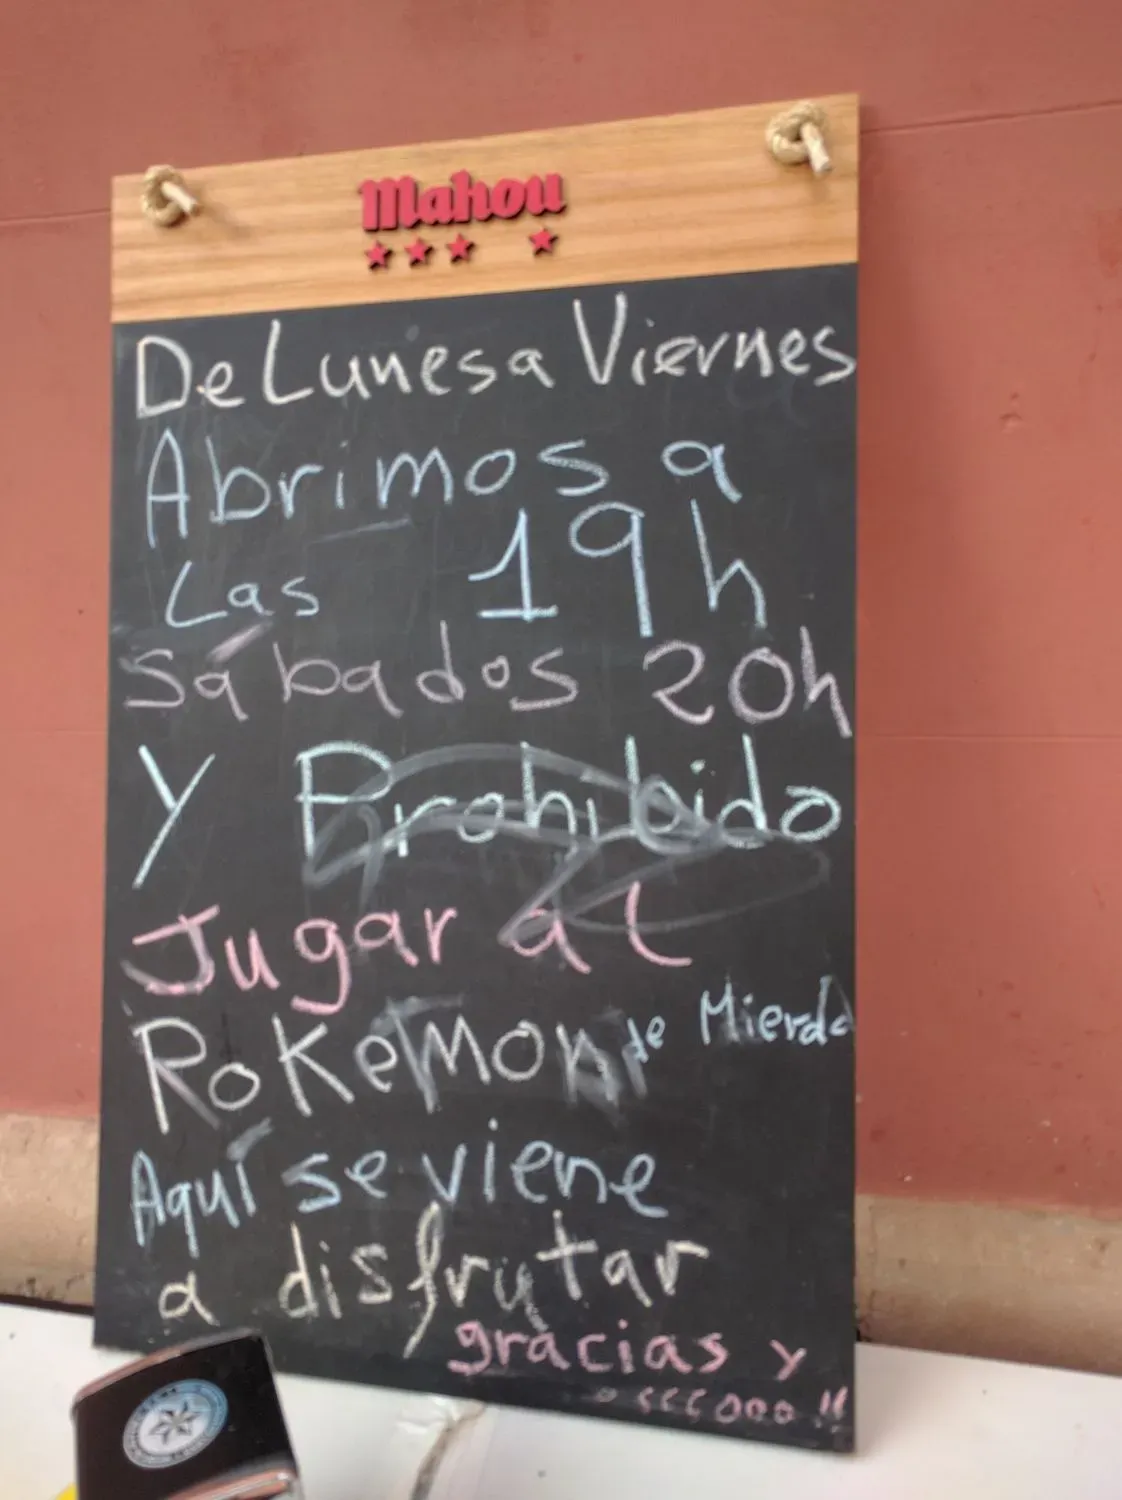 Mahou
De Lunes a Viernes
Abrimos a
Las 19h
Sábados 20h
Y Prohibido
Jugar al
RoKemon de Mierda
Aquí se viene
a disfrutar
gracias y